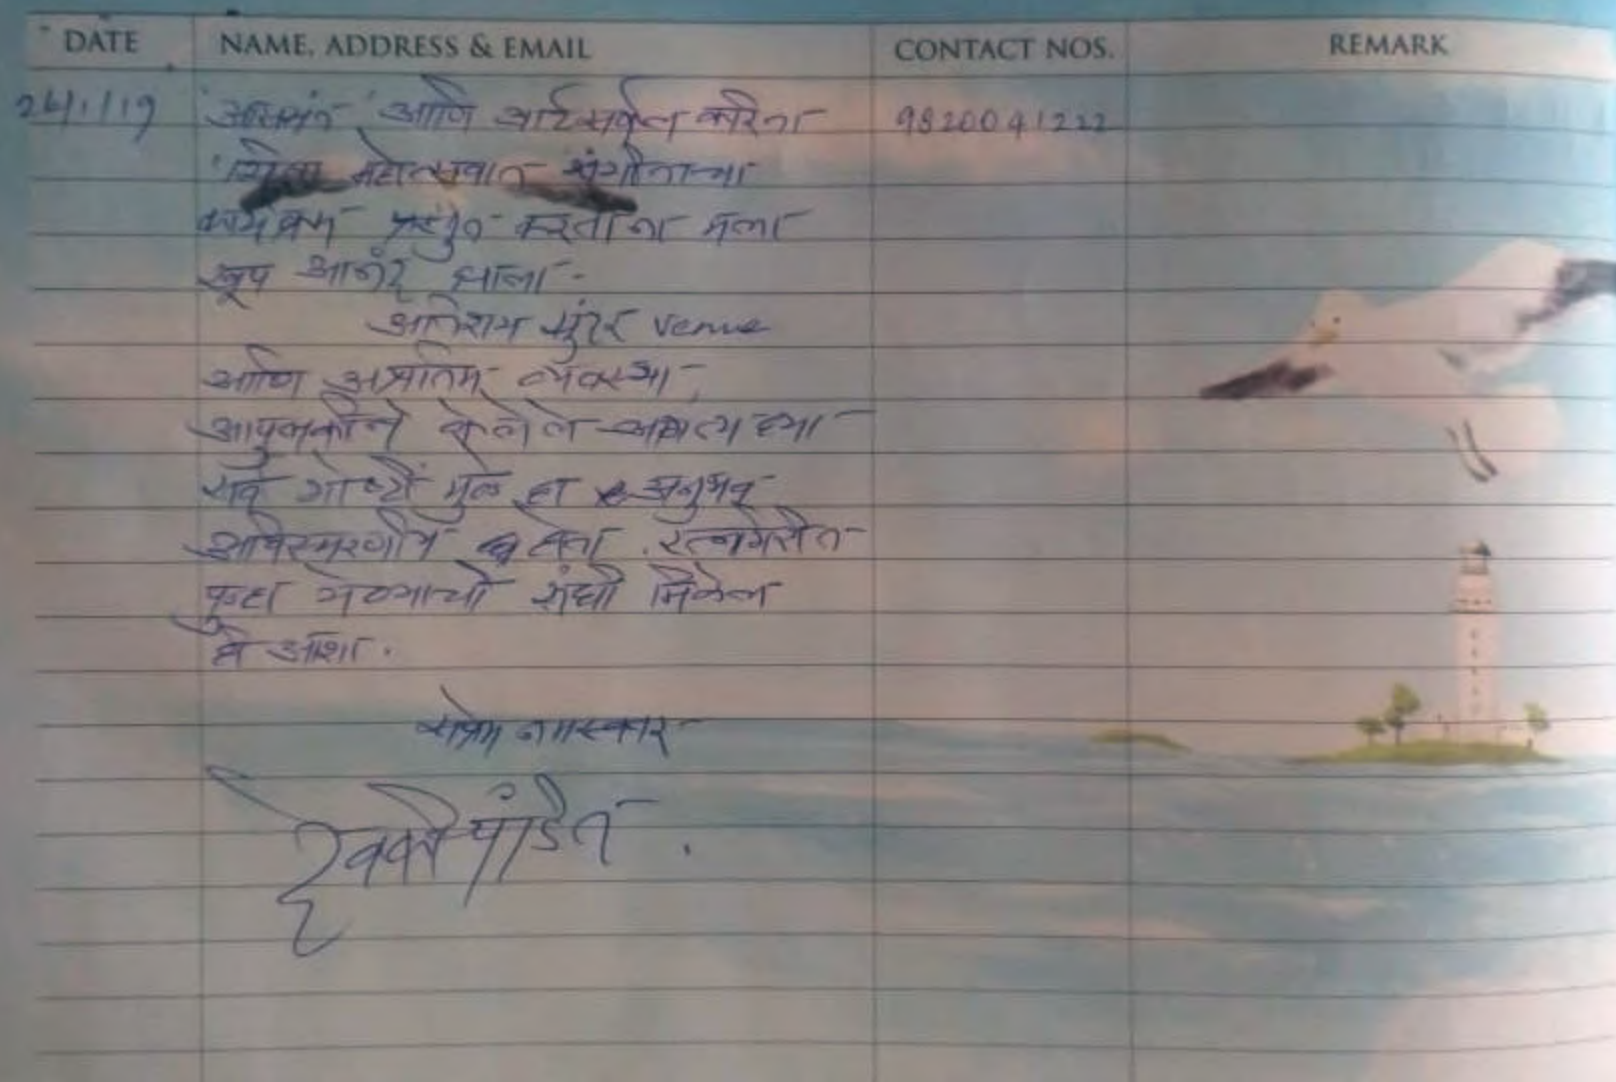 DATE NAME, ADDRESS & EMAIL CONTACT NOS. REMARK
24/1/19 आणि आर्टसर्कल करिता 9820041222
महोत्सवात संगीताचा
कार्यक्रम प्रस्तुत करताना मला
खूप आनंद झाला.
अतिशय सुंदर venue
आणि अप्रतिम व्यवस्था,
आपुलकीने केलेले अगत्य ह्या
सर्व गोष्टीं मुळे हा अनुभव
अविस्मरणीय होता. रत्नागिरीत
पुन्हा येण्याची संधी मिळेल
ही आशा.
सप्रेम नमस्कार
पंडित.